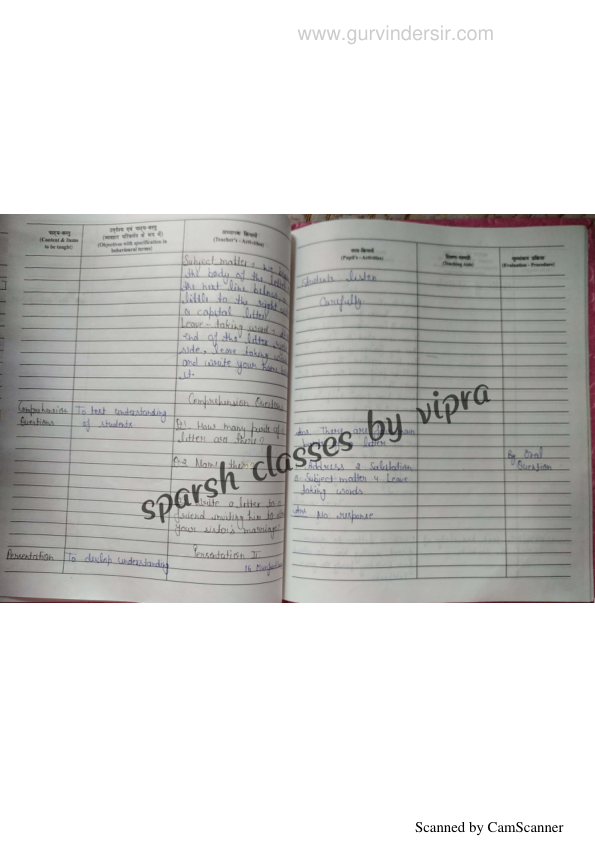 www.gurvindersir.com
पाठ्य-वस्तु
(Content & Items
to be taught)
उद्देश्य एवं पाठ्य-वस्तु
(व्यवहार परिवर्तन के रूप में)
(Objectives with specification in
behavioural terms)
अध्यापक क्रियायें
(Teacher's - Activities)
Subject matter :
the body of the letter
the next line below
little to the right
a capital letter
Leave - taking word :
end of the letter
side, leave taking
and write your name
it.
Comprehension Question
Comprehension
Questions
To test understanding
of students
How many parts of
letter are there?
Q-2 Name the
write a letter to
friend inviting him to
your sister's marriage
Presentation
To develop understanding
Persentation II
छात्र-क्रियायें
(Pupil's - Activities)
शिक्षण सामग्री
(Teaching Aids)
मूल्यांकन प्रक्रिया
(Evaluation - Procedure)
Students listen
Carefully
Ans There are
letter
Address 2 Salutation
Subject matter 4 Leave
taking words
Ans No response
By Oral
Question
sparsh classes by vipra
Scanned by CamScanner